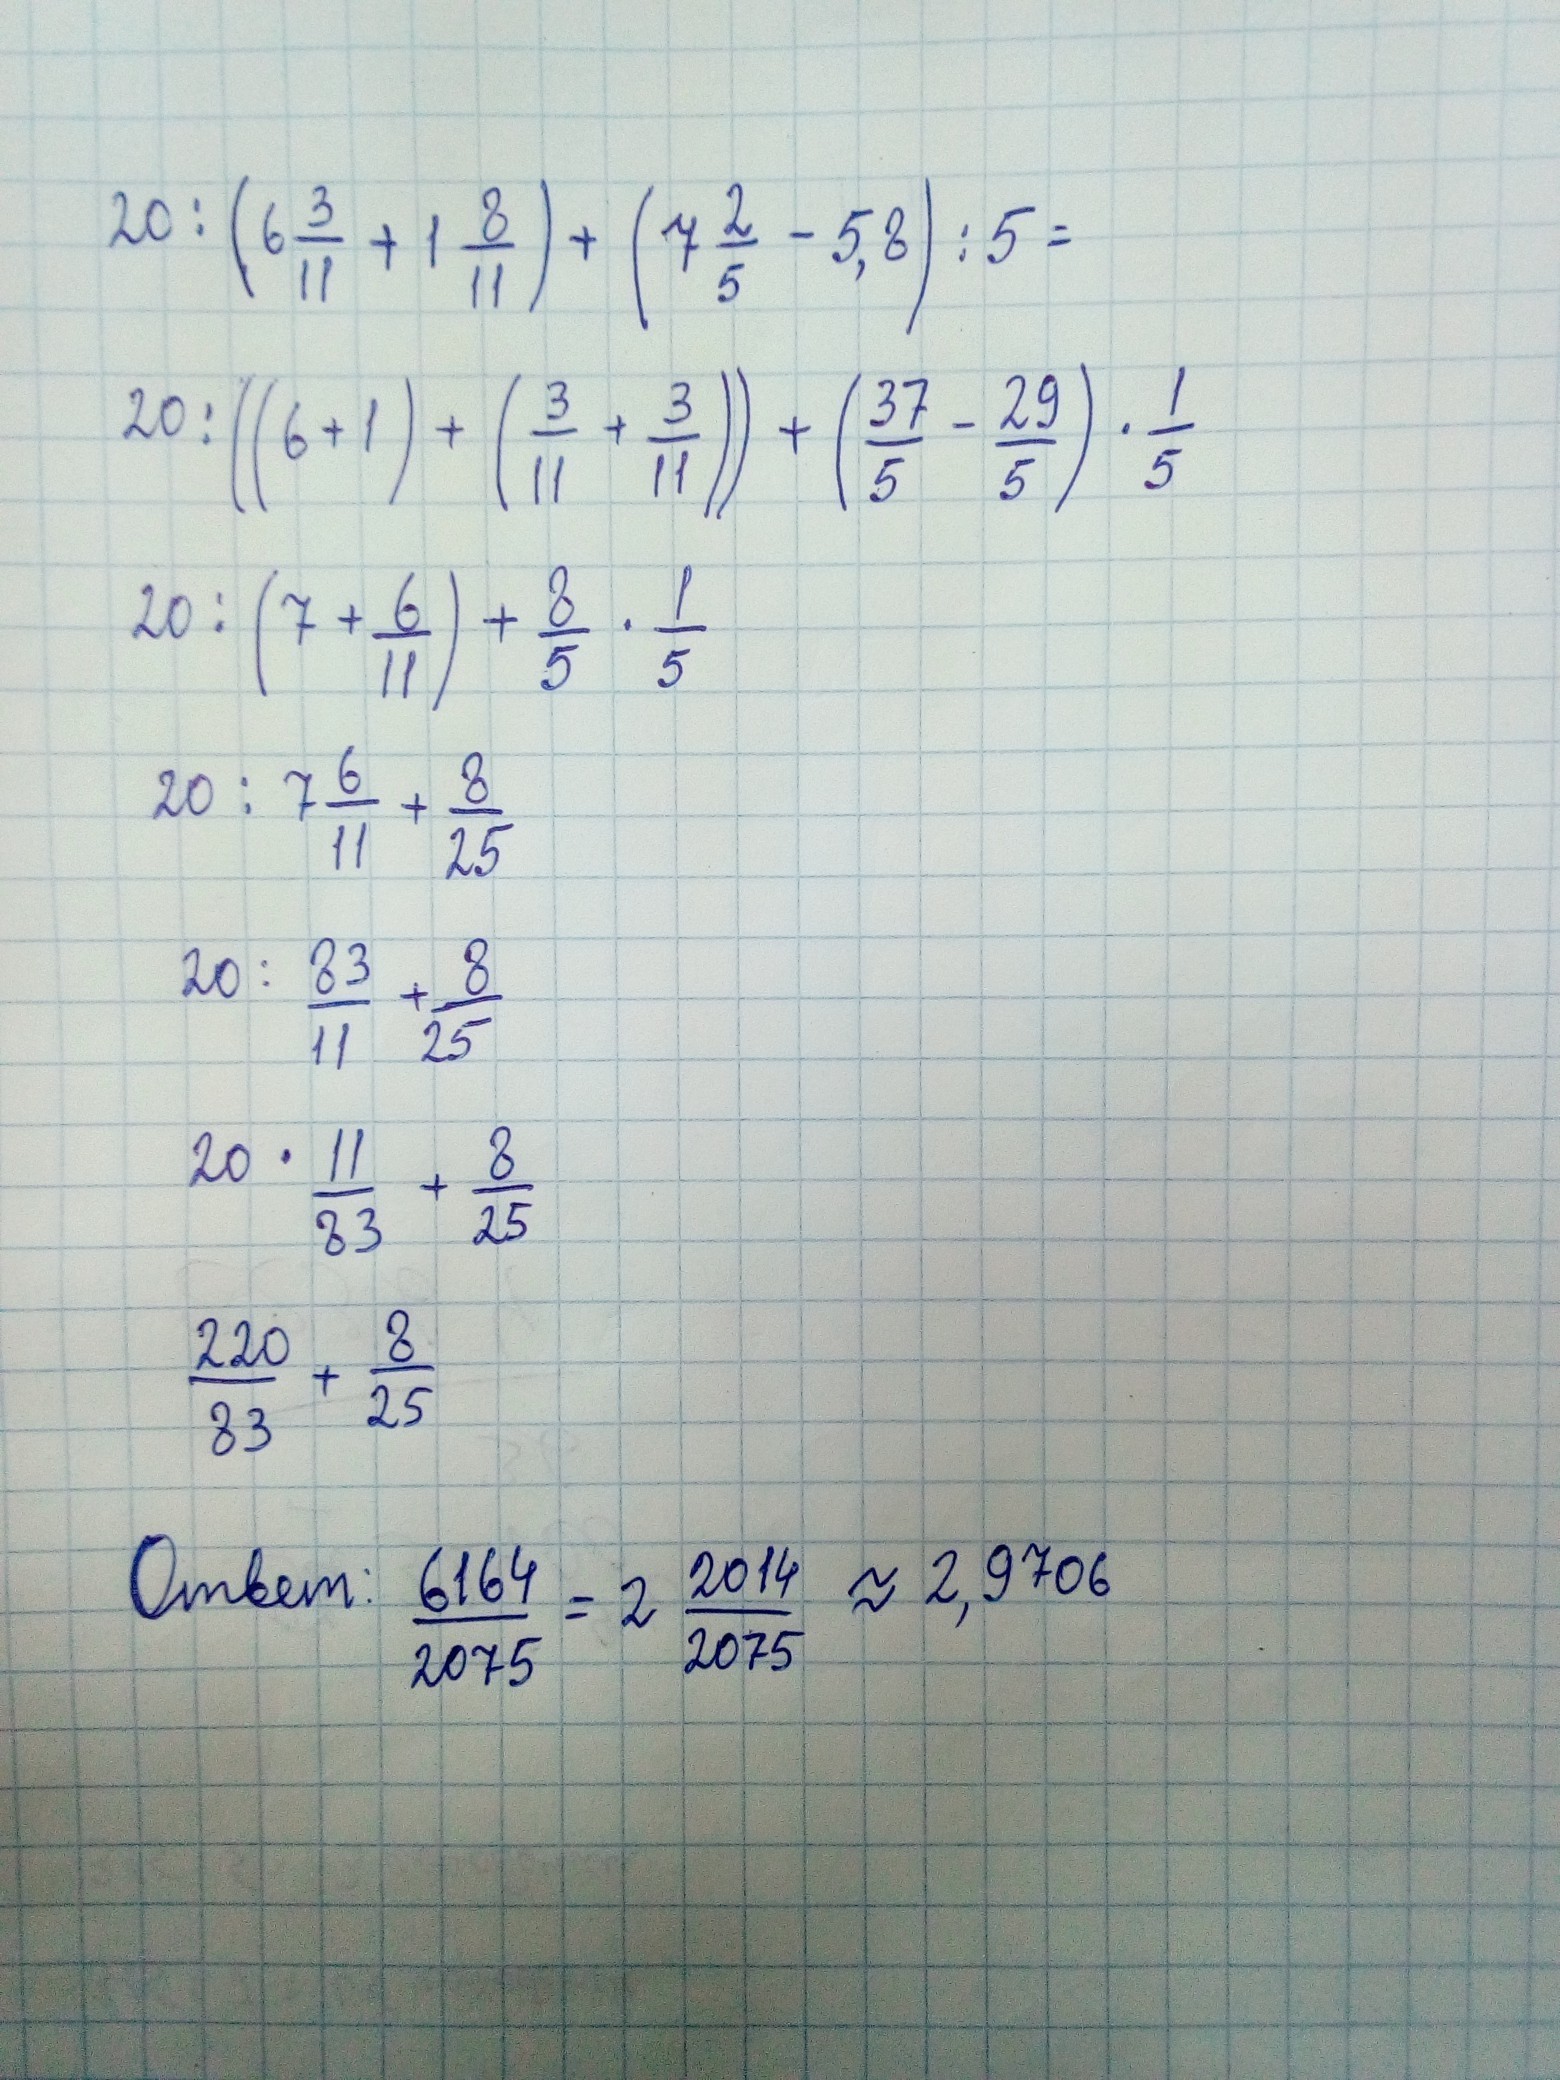 20 : (6 3/11 + 1 8/11) + (7 2/5 - 5,8) : 5 =
20 : ((6 + 1) + (3/11 + 3/11)) + (37/5 - 29/5) · 1/5
20 : (7 + 6/11) + 8/5 · 1/5
20 : 7 6/11 + 8/25
20 : 83/11 + 8/25
20 · 11/83 + 8/25
220/83 + 8/25
Ответ: 6164/2075 = 2 2014/2075 ≈ 2,9706